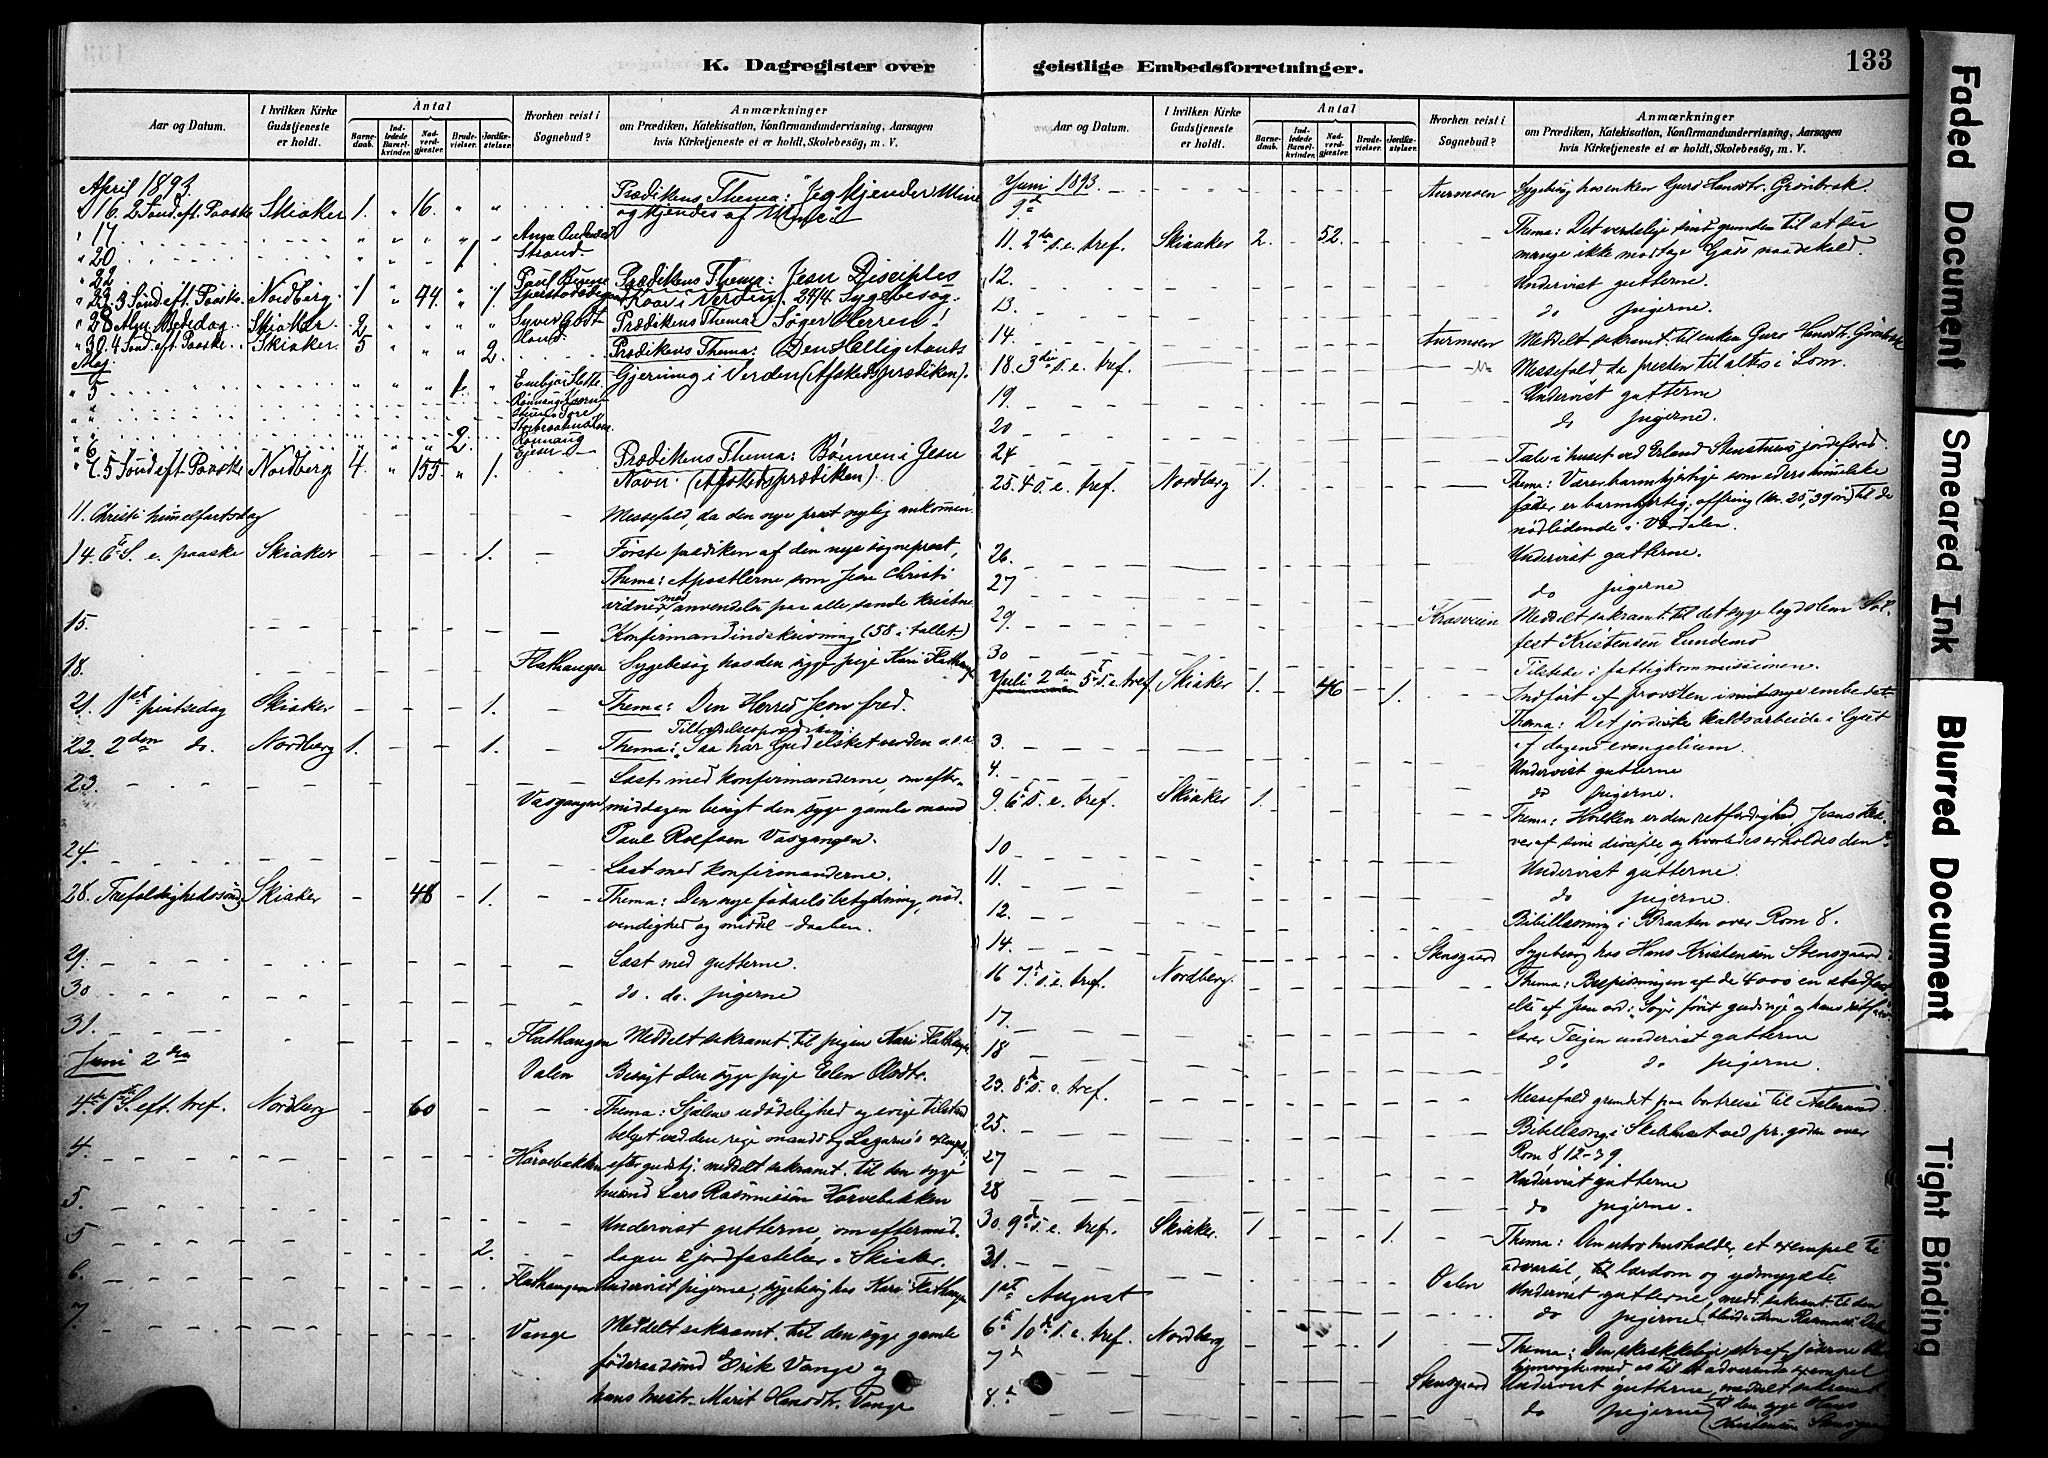 K. Dagregister over geistlige Embedsforretninger.
133
Aar og Datum.
I hvilken Kirke Gudstjeneste er holdt.
Antal
Barnedaab.
Indledede Barselkvinder.
Nadverdgjester.
Brudevielser.
Jordfæstelser.
Hvorhen reist i Sognebud?
Anmærkninger
om Prædiken, Katekisation, Konfirmandundervisning, Aarsagen
hvis Kirketjeneste ei er holdt, Skolebesøg, m. V.
April 1893.
16. 2 Sønd. eft. Paaske Skiaker 1. " 16. " " Prædikens Thema: "Jeg kjender Mine
og kjendes af Mine"
" 17
" 20 Strand.
" 22
" 23. 3 Sønd eft. Paaske Nordberg. 1 " 44 " 1. Prædikens Thema: Jesu Disciples
Kaar i Verden. 24/4 Sygebesøg.
" 28 Alm. Bededag Skiaker. 2 Prædikens Thema: Søger Herren!
" 30. 4 Sønd. eft. Paaske Skiaker. 5 " " " 2. Prædikens Thema: Den Hellig Aands
Maj
Gjerning i Verden (Afskedsprædiken).
" 5
" 6 2.
" 7. 5 Sønd eft Paaske Nordberg 4. " 155. " 1. Prædikens Thema: Bønnen i Jesu
Navn. (Afskedsprædiken).
11. Christi himmelfartsdag Messefald, da den nye prest nylig ankommen
14. 6te S. e. paaske Skiaker 1. Første prædiken af den nye sogneprest,
Thema: Apostlerne som Jesu Christi
vidner, med anvendelse paa alle sande kristne
15. Konfirmandindskrivning (58 i tallet)
18. Flathaugen Sygebesøg hos den syge pige Kari Flathaugen
21. 1st pintsedag Skiaker 1. Thema: Den Herres Jesu fred.
Tiltrædelsesprædiken:
22. 2den do. Nordberg 1. 1. Thema: Saa har Gud elsket verden o.s.v.
23. Læst med konfirmanderne, om efter-
Vasgangen middagen besøgt den syge gamle mand
Paul Rolfsen Vasgangen.
24. Læst med konfirmanderne.
28. Trefoldighedssønd. Skiaker 48 1. Thema: Den nye fødsels betydning, nød-
vendighed og middel - daaben.
29. Læst med gutterne.
30 do. do. pigerne
31. Flathaugen Meddelt sakramt. til pigen Kari Flathaugen
Juni 2den Dalen Besøgt den syge pige Elen Olsdtr.
4de 1st S. eft. tref. Nordberg 60 Thema: Sjælens udødelighed og evige tilstand
belyst ved den rige mands og Lazarus's exempel.
4. Harvebakken efter gudstj. meddelt sakramt. til den syge
mand Lars Rasmussen Harvebakken
5. Undervist gutterne, om eftermid-
5 2. dagen 2 jordfæstelser i Skiaker.
6. Flathaugen Undervist pigerne, sygebesøg hos Kari Flathaugen
7. Vange Meddelt sakramt. til den syge gamle
føderaadsmd Erik Vange og
hans hustr. Marit Hansdtr. Vange
Aar og Datum.
I hvilken Kirke Gudstjeneste er holdt.
Antal
Barnedaab.
Indledede Barselkvinder.
Nadverdgjester.
Brudevielser.
Jordfæstelser.
Hvorhen reist i Sognebud?
Anmærkninger
om Prædiken, Katekisation, Konfirmandundervisning, Aarsagen
hvis Kirketjeneste ei er holdt, Skolebesøg, m. V.
Juni 1893.
9. Aurmoen Sygebesøg hos enken Guro Hansdtr. Grønbrek.
11. 2den S. e. tref. Skiaker 2. 52. Thema: Det verdslige sind grunden til at saa
mange ikke modtage Guds naadekald.
12. Undervist gutterne.
13. do pigerne.
14. Aurmoen Meddelt sakramt. til enken Guro Hansdtr. Grønbrek
18. 3die S. e. tref. Messefald da presten til alters i Lom.
19. Undervist gutterne
20 do pigerne.
24 Tale i huset ved Erland jordefærd
25. 4 S. e. tref. Nordberg 1. Thema: Værer barmhjertige som eders himmelske
fader er barmhjertig, offring til de
nødlidende i Værdalen.
26. Undervist gutterne.
27 do pigerne
29. Meddelt sakramt. til det syge lagdslem
Kristensen Lundemo
30 Tilstede i fattigkommissionen.
Juli 2den 5 S. e. tref Skiaker 1. 46 1. Indført af provsten i mit nye embede
Thema: Det jordiske kaldsarbeide i lyset
af dagens evangelium.
3. Undervist gutterne
4. do pigerne.
9. 6te S. e. tref. Skiaker 1. Thema: Hvilken er den retfærdighed, Jesus kræ-
ver af sine disciple, og hvorledes erholdes den?
10 Undervist gutterne.
11. do pigerne.
12. Bibellæsning i Braaten over Rom 8.
14. Stensgaard Sygebesøg hos Hans Kristensen Stensgaard.
16 7de S. e. tref. Nordberg. Thema: Bespisningen af de 4000 en stadfæst-
else af Jesu ord: Søger først guds rige og hans retfærd.
17. Lærer Teigen undervist gutterne
18 do do pigerne.
23. 8de S. e. tref. Messefald grundet paa bortreise til Aalesund.
25. Bibellæsning i Skolehuset ved pr.gden over
Rom 8 12-39.
27 Undervist gutterne
28 do pigerne.
30. 9de S. e. tref. Skiaker. 1 1. Thema: Den utro husholder, et exempel til
advarsel, til lærdom og ydmygelse
31. Undervist gutterne, medd. sakramt. til den
1st August Dalen do pigerne
6te 10de S. e. tref. Nordberg 1 Thema: Den
7de Undervist gutterne, meddelt sakramt
8de Stensgaard do pigerne til den syge Hans
Kristensen Stensgaard
Faded Document
Smeared Ink
Blurred Document
Tight Binding